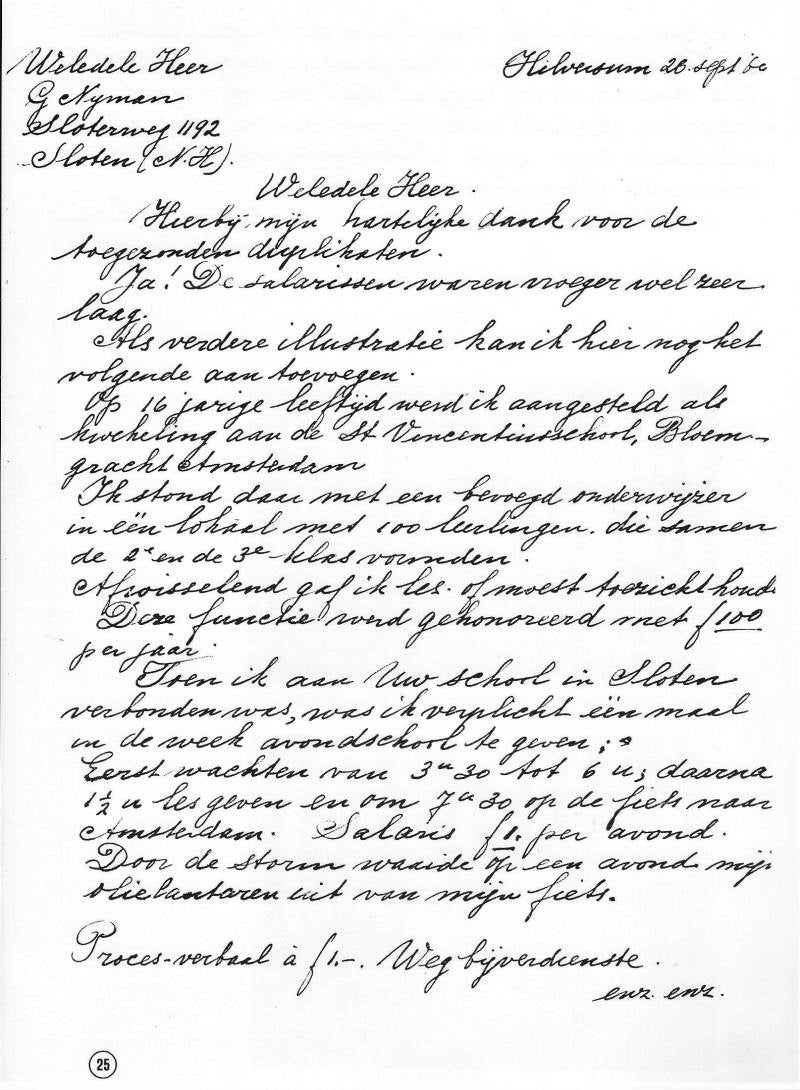 Weledele Heer
Hilversum 28 sept '60
G Nyman
Sloterweg 1192
Sloten (N.H).
Weledele Heer.
Hierbij mijn hartelijke dank voor de
toegezonden duplikaten.
Ja! De salarissen waren vroeger wel zeer
laag.
Als verdere illustratie kan ik hier nog het
volgende aan toevoegen.
Op 16 jarige leeftijd werd ik aangesteld als
kwekeling aan de St Vincentiusschool, Bloem-
gracht Amsterdam
Ik stond daar met een bevoegd onderwijzer
in ëën lokaal met 100 leerlingen. die samen
de 2e en de 3e klas vormden.
Afwisselend gaf ik les. of moest toezicht houd
Deze functie werd gehonoreerd met f 100
per jaar.
Toen ik aan Uw school in Sloten
verbonden was, was ik verplicht ëën maal
in de week avondschool te geven;
Eerst wachten van 3 u 30 tot 6 u; daarna
1 1/2 u les geven en om 7 u 30 op de fiets naar
Amsterdam. Salaris f 1. per avond.
Door de storm waaide op een avond mijn
olielantaren uit van mijn fiets.
Proces-verbaal à f 1.-. Weg bijverdienste.
enz. enz.
25